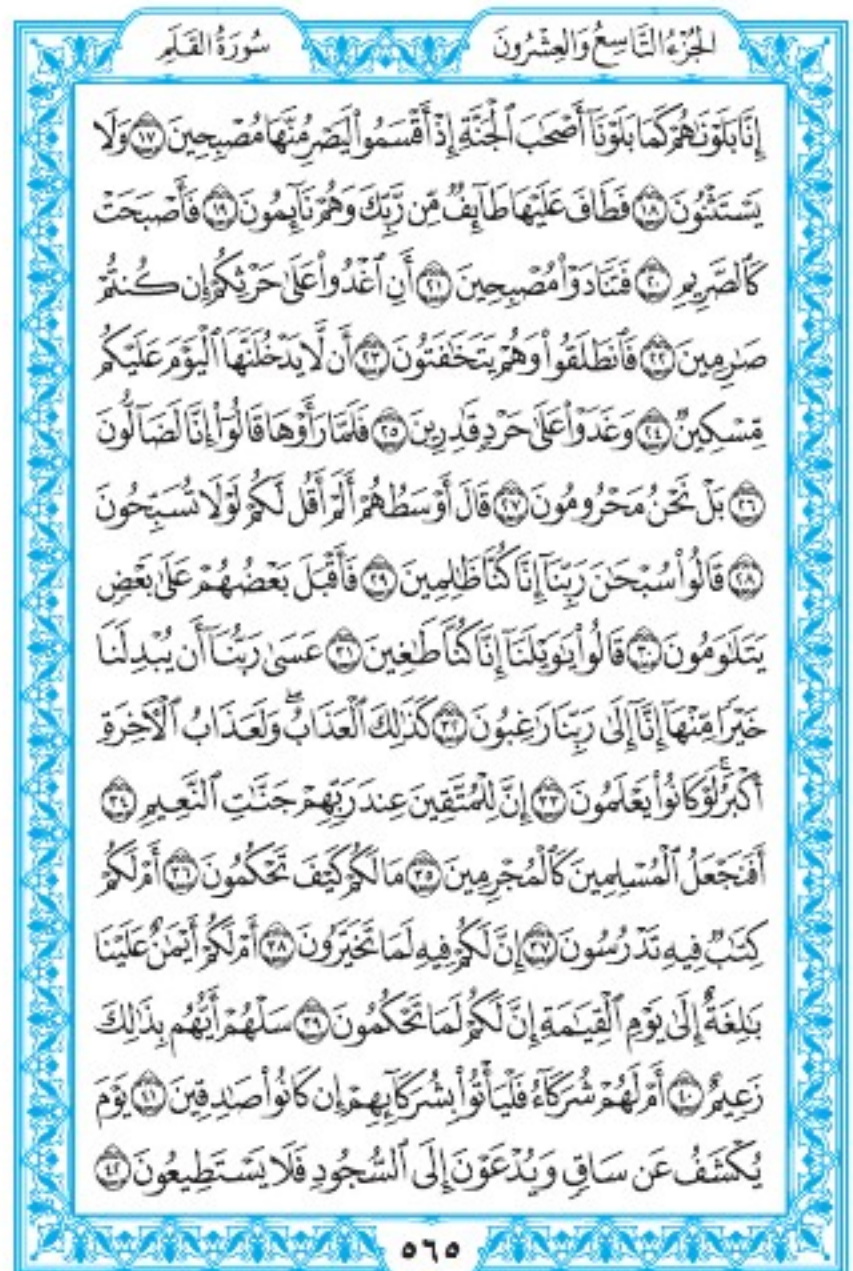 الجزء التاسع والعشرون
سورة القلم
إِنَّا بَلَوْنَٰهُمْ كَمَا بَلَوْنَآ أَصْحَٰبَ ٱلْجَنَّةِ إِذْ أَقْسَمُوا۟ لَيَصْرِمُنَّهَا مُصْبِحِينَ ١٧ وَلَا
يَسْتَثْنُونَ ١٨ فَطَافَ عَلَيْهَا طَآئِفٌ مِّن رَّبِّكَ وَهُمْ نَآئِمُونَ ١٩ فَأَصْبَحَتْ
كَٱلصَّرِيمِ ٢٠ فَتَنَادَوْا۟ مُصْبِحِينَ ٢١ أَنِ ٱغْدُوا۟ عَلَىٰ حَرْثِكُمْ إِن كُنتُمْ
صَٰرِمِينَ ٢٢ فَٱنطَلَقُوا۟ وَهُمْ يَتَخَٰفَتُونَ ٢٣ أَن لَّا يَدْخُلَنَّهَا ٱلْيَوْمَ عَلَيْكُم
مِّسْكِينٌ ٢٤ وَغَدَوْا۟ عَلَىٰ حَرْدٍ قَٰدِرِينَ ٢٥ فَلَمَّا رَأَوْهَا قَالُوٓا۟ إِنَّا لَضَآلُّونَ
٢٦ بَلْ نَحْنُ مَحْرُومُونَ ٢٧ قَالَ أَوْسَطُهُمْ أَلَمْ أَقُل لَّكُمْ لَوْلَا تُسَبِّحُونَ
٢٨ قَالُوا۟ سُبْحَٰنَ رَبِّنَآ إِنَّا كُنَّا ظَٰلِمِينَ ٢٩ فَأَقْبَلَ بَعْضُهُمْ عَلَىٰ بَعْضٍ
يَتَلَٰوَمُونَ ٣٠ قَالُوا۟ يَٰوَيْلَنَآ إِنَّا كُنَّا طَٰغِينَ ٣١ عَسَىٰ رَبُّنَآ أَن يُبْدِلَنَا
خَيْرًا مِّنْهَآ إِنَّآ إِلَىٰ رَبِّنَا رَٰغِبُونَ ٣٢ كَذَٰلِكَ ٱلْعَذَابُ ۖ وَلَعَذَابُ ٱلْءَاخِرَةِ
أَكْبَرُ ۚ لَوْ كَانُوا۟ يَعْلَمُونَ ٣٣ إِنَّ لِلْمُتَّقِينَ عِندَ رَبِّهِمْ جَنَّٰتِ ٱلنَّعِيمِ ٣٤
أَفَنَجْعَلُ ٱلْمُسْلِمِينَ كَٱلْمُجْرِمِينَ ٣٥ مَا لَكُمْ كَيْفَ تَحْكُمُونَ ٣٦ أَمْ لَكُمْ
كِتَٰبٌ فِيهِ تَدْرُسُونَ ٣٧ إِنَّ لَكُمْ فِيهِ لَمَا تَخَيَّرُونَ ٣٨ أَمْ لَكُمْ أَيْمَٰنٌ عَلَيْنَا
بَٰلِغَةٌ إِلَىٰ يَوْمِ ٱلْقِيَٰمَةِ إِنَّ لَكُمْ لَمَا تَحْكُمُونَ ٣٩ سَلْهُمْ أَيُّهُم بِذَٰلِكَ
زَعِيمٌ ٤٠ أَمْ لَهُمْ شُرَكَآءُ فَلْيَأْتُوا۟ بِشُرَكَآئِهِمْ إِن كَانُوا۟ صَٰدِقِينَ ٤١ يَوْمَ
يُكْشَفُ عَن سَاقٍ وَيُدْعَوْنَ إِلَى ٱلسُّجُودِ فَلَا يَسْتَطِيعُونَ ٤٢
٥٦٥